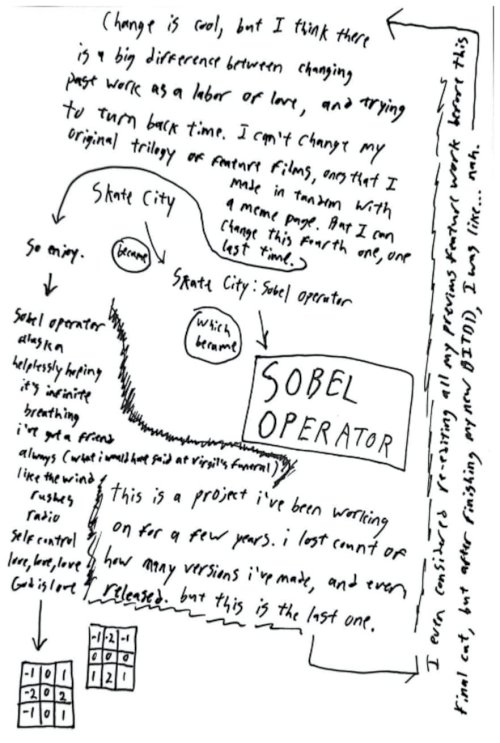 Change is cool, but I think there
is a big difference between changing
past work as a labor of love, and trying
to turn back time. I can't change my
original trilogy of feature films, ones that I
made in tandem with
a meme page. But I can
change this fourth one, one
last time.
Skate City
became
Skate City: Sobel operator
which
became
SOBEL
OPERATOR
So enjoy.
Sobel operator
alaska
helplessly hoping
it's infinite
breathing
i've got a friend
always (what i would have said at virgil's funeral)
like the wind
rushes
radio
self control
love, love, love
God is love
-1 0 1
-2 0 2
-1 0 1
-1 -2 -1
0 0 0
1 2 1
this is a project i've been working
on for a few years. i lost count of
how many versions i've made, and even
released. but this is the last one.
I even considered re-editing all my previous feature work before this
final cut, but after finishing my new I was like... nah.